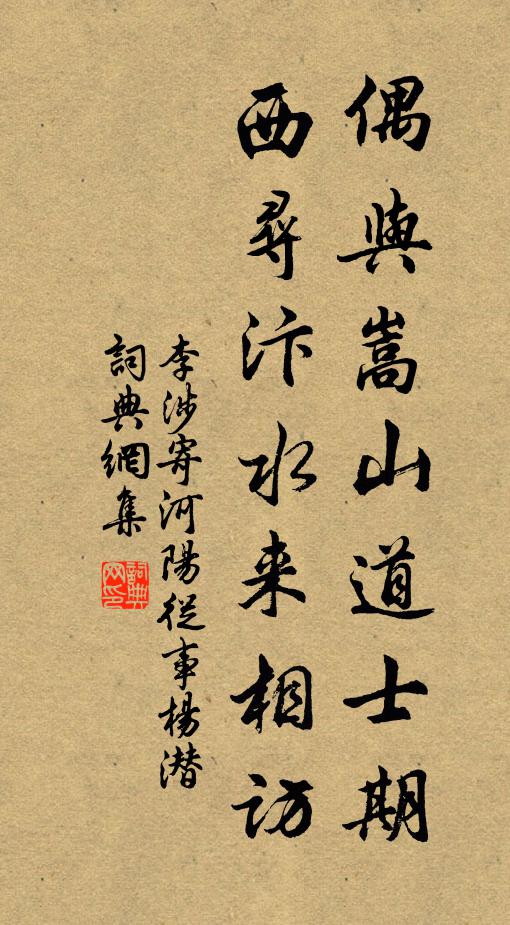 偶與嵩山道士期
西尋汴水来相訪
李涉寄河陽從事楊潜
詞典網集
詞典
网印